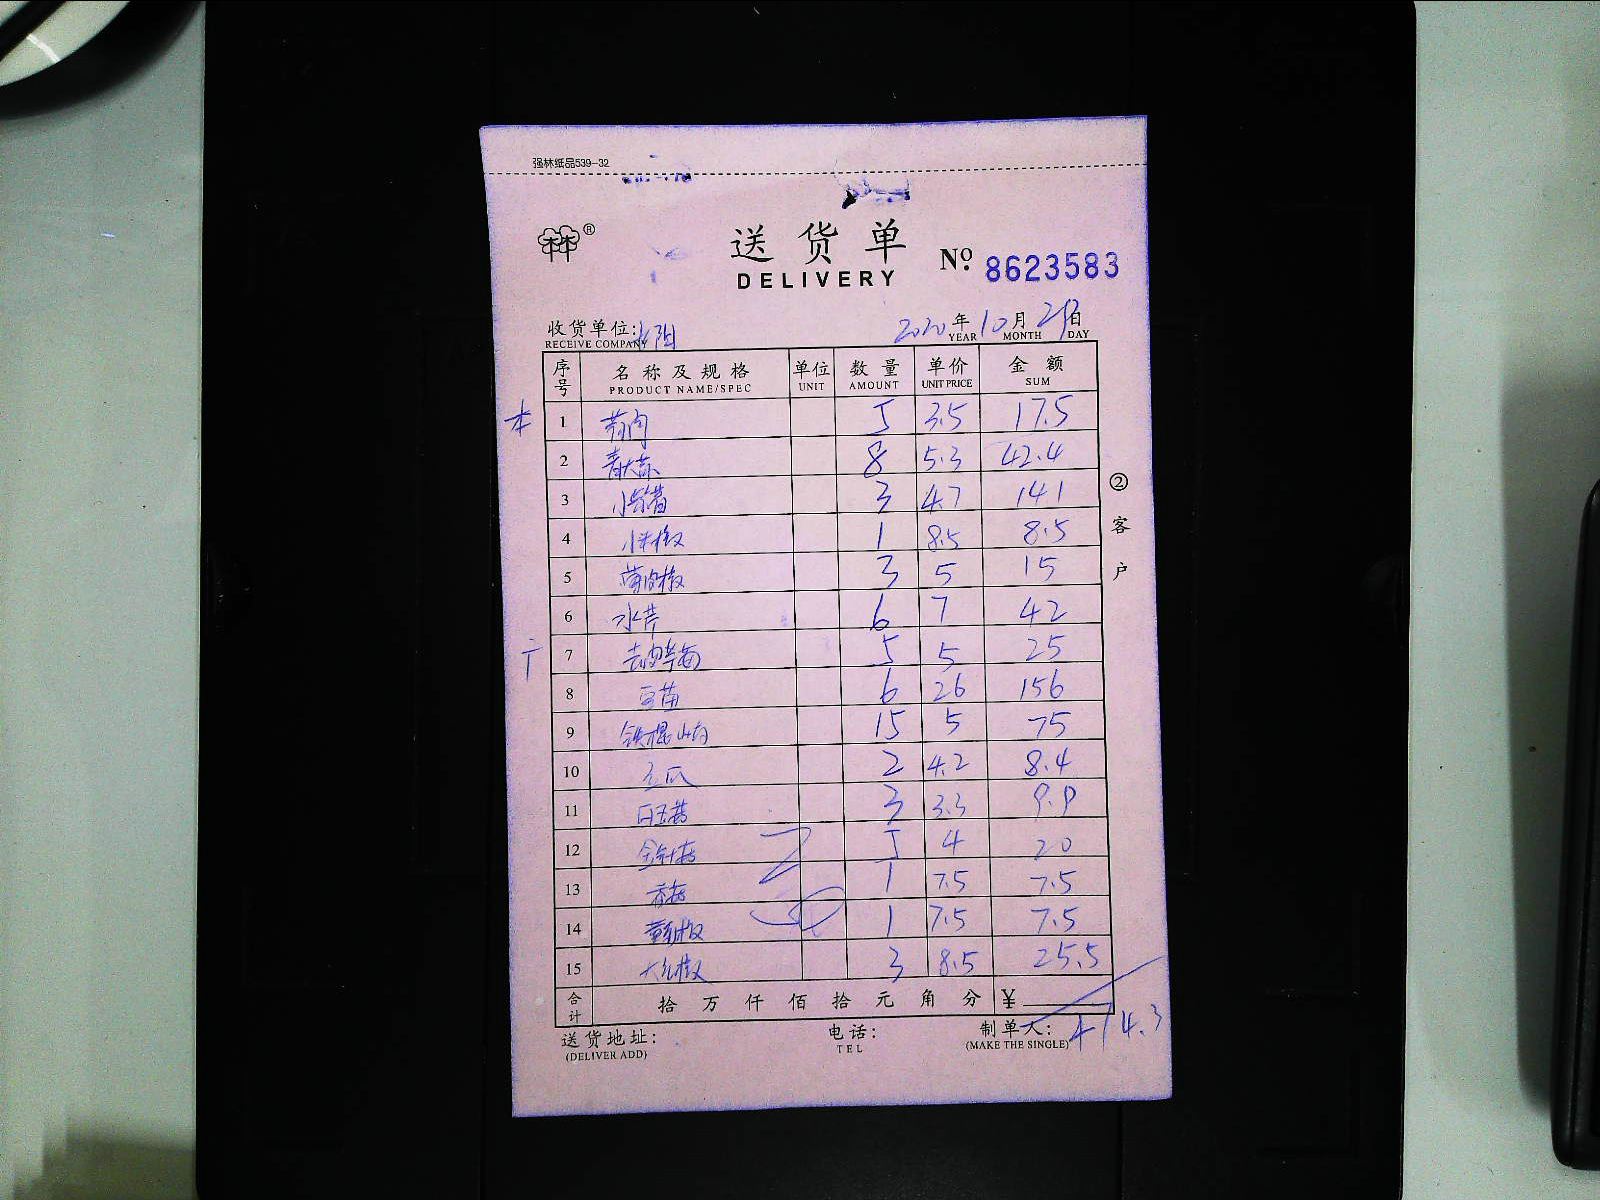 强林纸品539-32
林®
送货单
DELIVERY
№ 8623583
收货单位:
RECEIVE COMPANY
2020年10月29日
YEAR MONTH DAY
序号 名称及规格 单位 数量 单价 金额
PRODUCT NAME/SPEC UNIT AMOUNT UNIT PRICE SUM
1 5 3.5 17.5
2 青大茄 8 5.3 42.4
3 3 4.7 141
4 小米椒 1 8.5 8.5
5 3 5 15
6 水芹 6 7 42
7 5 5 25
8 豆苗 6 26 156
9 铁棍山药 15 5 75
10 2 4.2 8.4
11 白玉菇 3 3.3 9.9
12 金针菇 5 4 20
13 香菇 1 7.5 7.5
14 1 7.5 7.5
15 大红椒 3 8.5 25.5
合计 拾万仟佰拾元角分 ¥
414.3
送货地址:
(DELIVER ADD)
电话:
TEL
制单人:
(MAKE THE SINGLE)
②客户